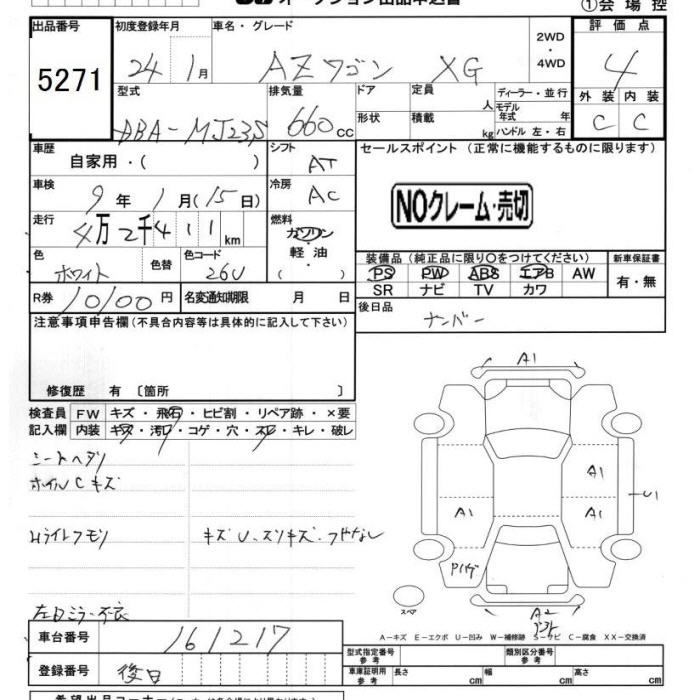 オークション出品申込書
①会場控
出品番号
5271
初度登録年月
24 1月
車名・グレード
AZワゴン XG
2WD
・
4WD
評価点
4
外装 内装
C C
型式
ABA-MJ23S
排気量
660cc
ドア
形状
定員 人
積載 kg
ディーラー・並行
モデル年式 年
ハンドル 左・右
車歴
自家用・( )
シフト
AT
車検
9年1月(15日)
冷房
AC
走行
4万2千411km
燃料
ガソリン
・
軽油
( )
色
ホワイト
色替
色コード
26U
R券 10100円
名変通知期限 月 日
セールスポイント(正常に機能するものに限ります)
NOクレーム・売切
装備品(純正品に限り〇をつけてください)
PS PW ABS エアB AW
SR ナビ TV カワ
新車保証書
有・無
後日品
ナンバー
注意事項申告欄(不具合内容等は具体的に記入して下さい)
修復歴 有〔箇所 〕
検査員
記入欄
FW キズ・飛石・ヒビ割・リペア跡・×要
内装 キズ・汚れ・コゲ・穴・スレ・キレ・破レ
シートヘタリ
ホイルCキズ
Hライトクモリ
キズU、スリキズ・ツヤなし
A1
A1
U1
A1
A1
A2
スペア
A-キズ E-エクボ U-凹み W-補修跡 S-サビ C-腐食 XX-交換済
車台番号 161217
登録番号 後日
型式指定番号
参考
類別区分番号
参考
車庫証明用
参考
長さ cm
幅 cm
高さ cm
希望出品コーナー